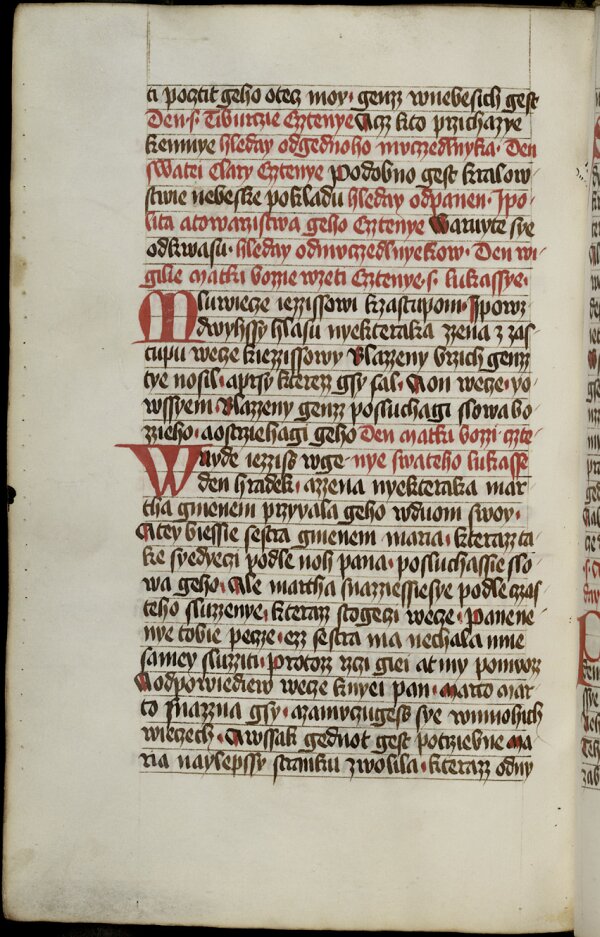 ti pocztil geho otecz moy · genz wnebesich gest
Den · s · Tiburczie Cztenye Acz kto przichazye
kemnye hleday odgednoho muczedlnyka · Den
swatei Clary Cztenye Podobno gest kralow
stwie nebeske pokladu hleday odpanen · Ipo
lita atowarzistwa geho Cztenye Waruyte sye
odkwasu · hleday odmuczedlnyekow · Den wi
gilie Matki bozzie wzeti Cztenye · s · lukassye ·
Mluwiecze iezzissowi kzastupom · Ipowz
dwyhssy hlasu nyekteraka zzena z zas
tupu wecze kiezzissowy Blazzeny brzich genz
tye nosil · aprsy kterez gsy sal · Aon wecze · yo
wssyem · Blazzeny genz posluchagi slowa bo
zzieho · aostrziehagi geho Den Matki bozzi · czte
Wnyde iezziss wge nye swateho lukasse
den hradek · azzena nyekteraka mar
tha gmenem przyyala geho wduom swoy ·
Atey biessie sestra gmenem maria · kterazz ta
ke syedyeczi podle noh pana · posluchassie slo
wa geho · Ale martha snazziessiesye podle czas
teho sluzzenye · kteraz stogeczi wecze · Panene
nye tobie pecze · ezz sestra ma nechala mne
samey sluzziti · Protoz rzci giei at my pomoz
Aodpowiediew wecze knyei pan · Marto mar
to snazzna gsy · azamuczugess sye wmnohich
wieczech · Awssak gednot gest potrziebne Ma
ria naylepssy stranku zwolila · kterazz odny